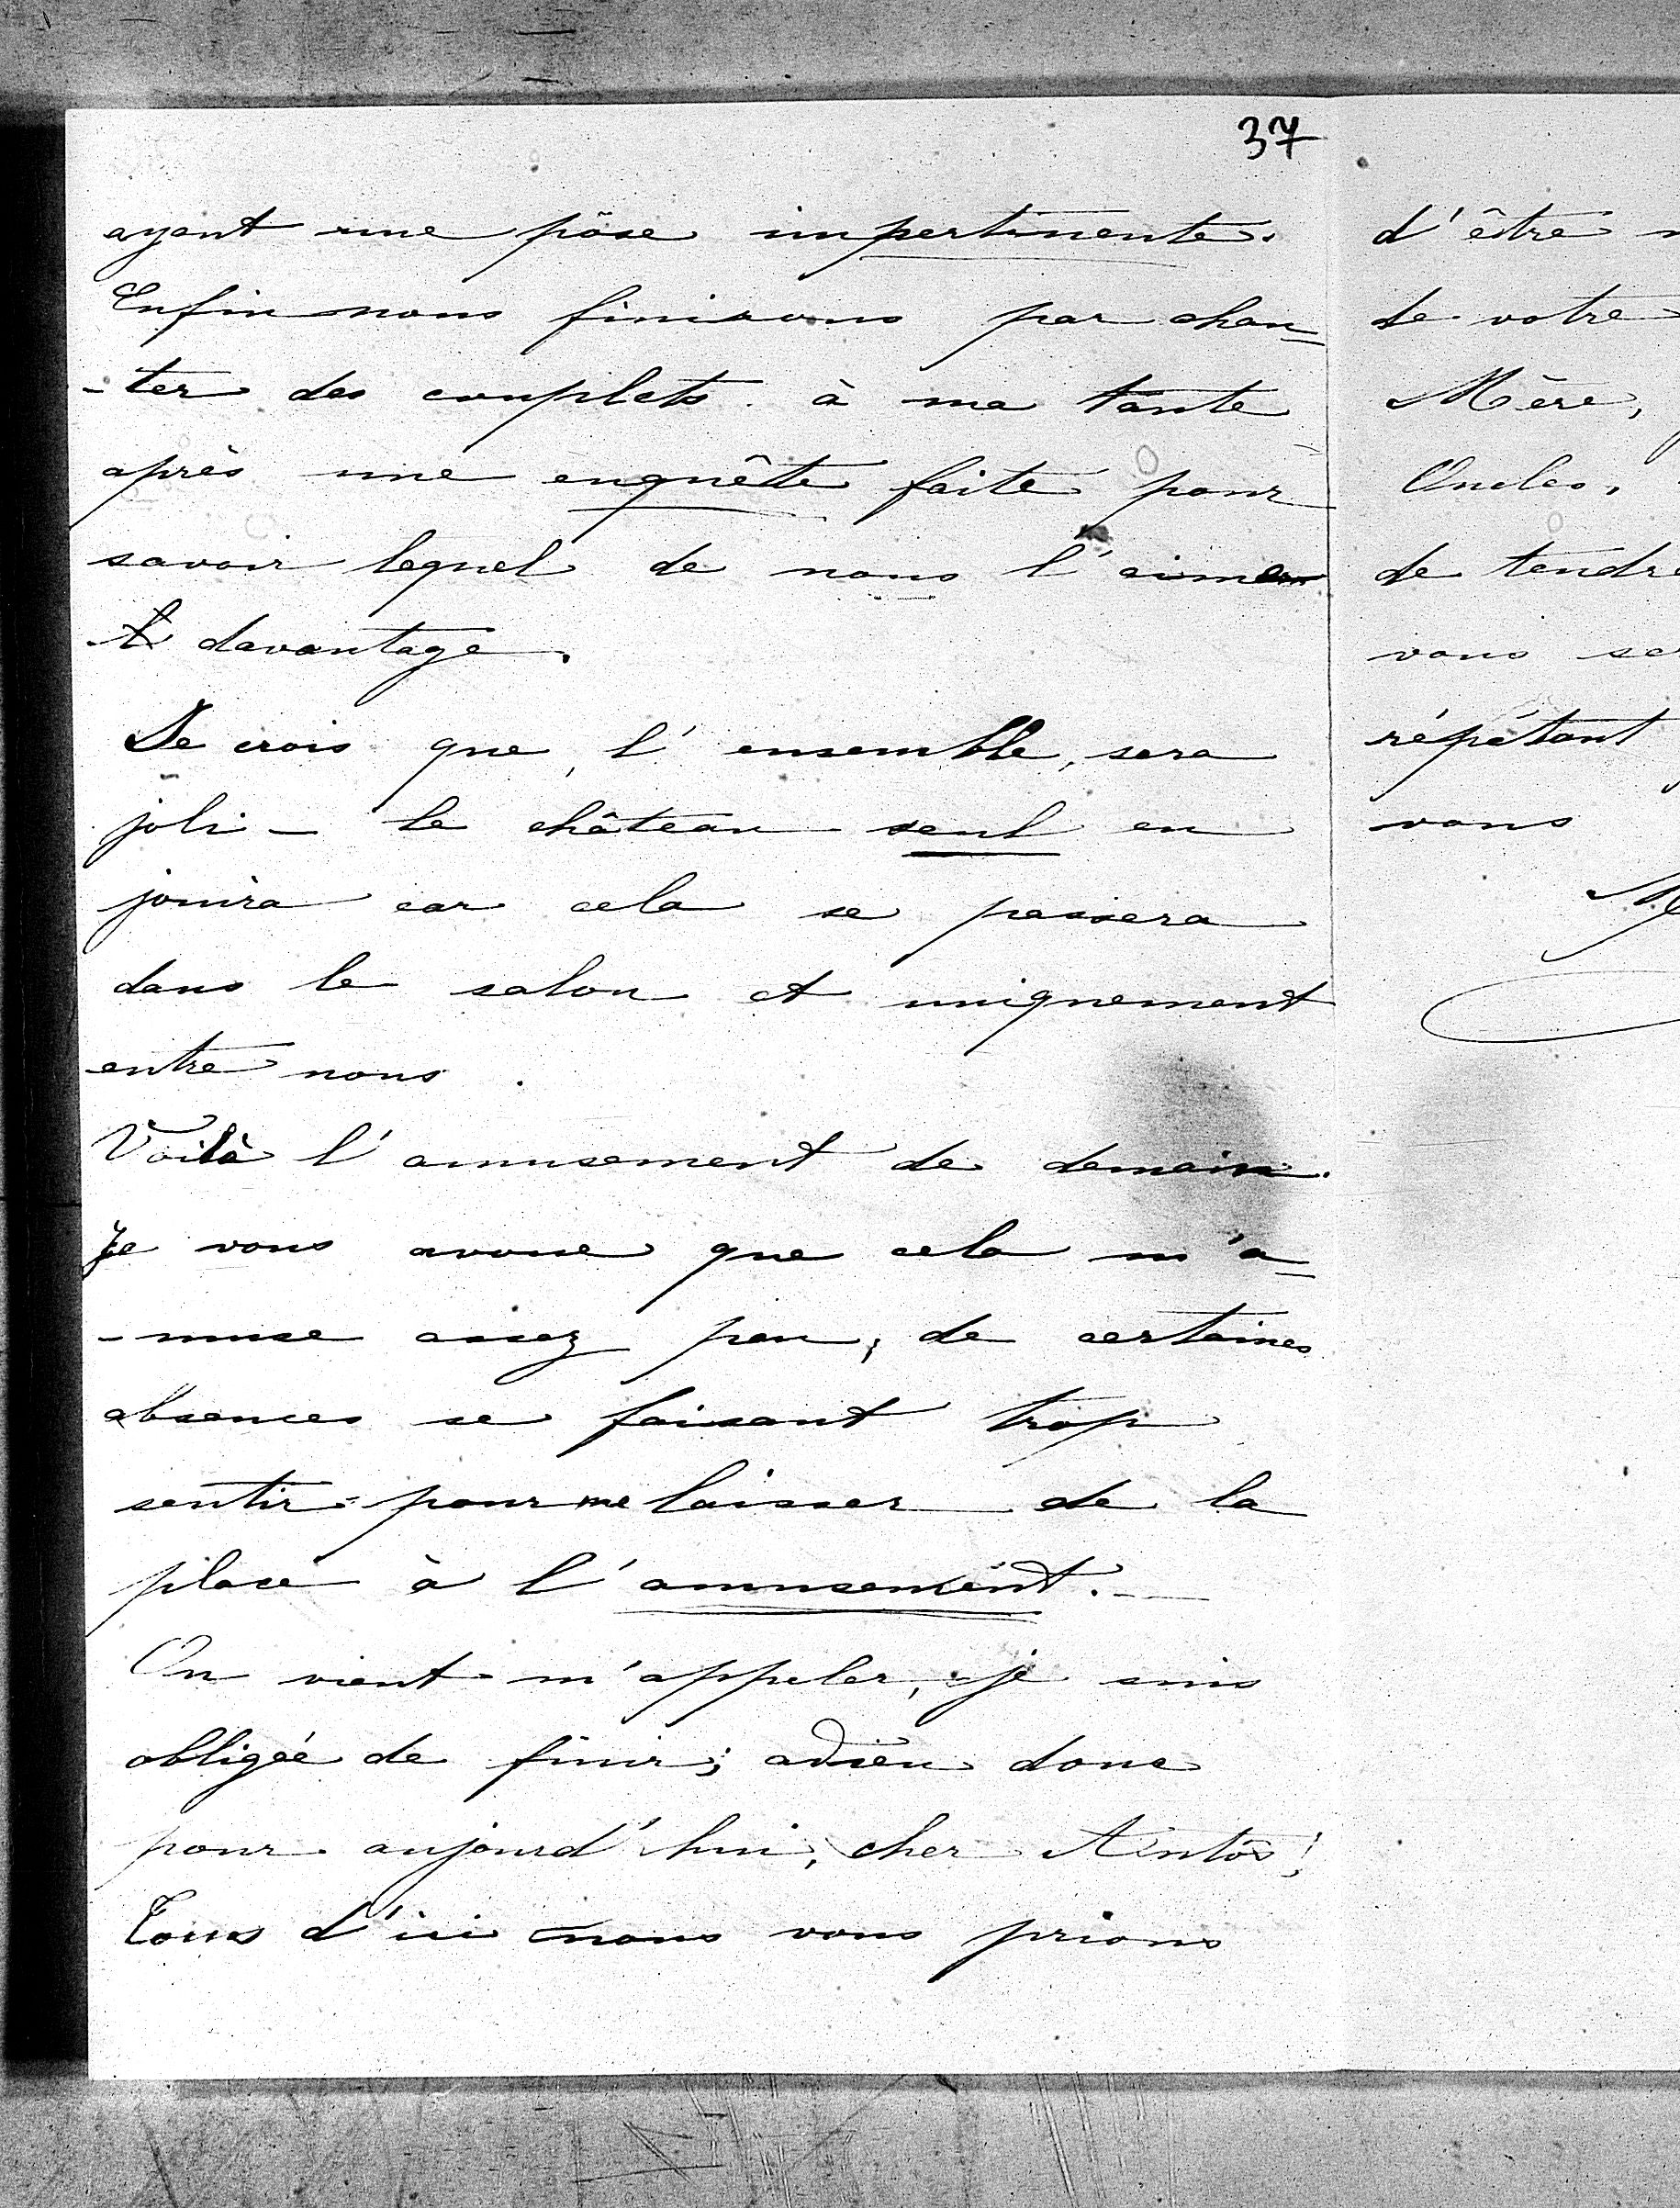 37
ayant une pôse impertinente.
Enfin nous finirons par chan-
-ter des couplets à ma tante
après une enquête faite pour
savoir lequel de nous l'aime
davantage.
Je crois que l'ensemble, sera
joli – le château seul en
jouira car cela se passera
dans le salon et uniquement
entre nous.
Voilà l'amusement de demain.
Je vous avoue que cela m'a-
-muse assez peu, de certaines
absences se faisant trop
sentir pour me laisser de la
place à l'amusement. –
On vient m'appeler, je suis
obligée de finir; adieu donc
pour aujourd'hui, cher Antos;
Tous d'ici nous vous prions
d'être
de votre
Mère,
Oncles,
de tendre
vous se
répétant
vous